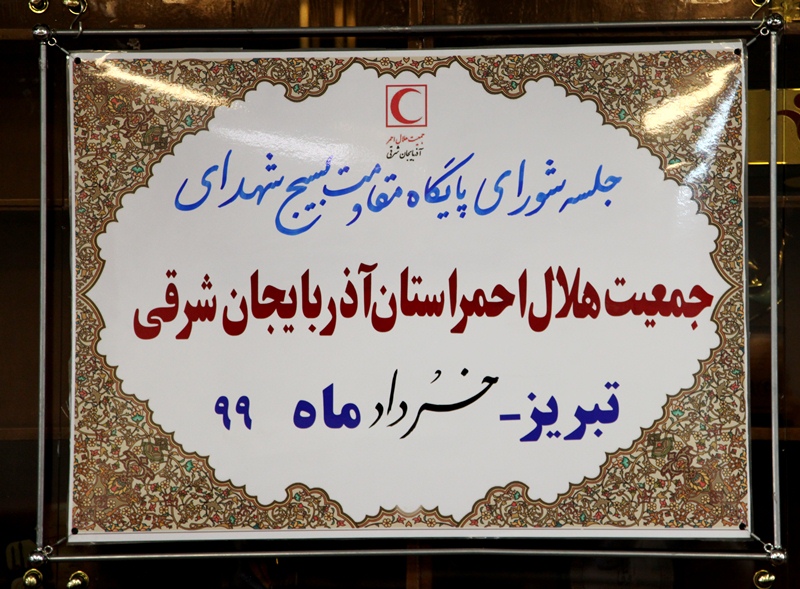 جمعیت هلال احمر
آذربایجان شرقی
جلسه شورای پایگاه مقاومت بسیج شهدای
جمعیت هلال احمر استان آذربایجان شرقی
تبریز - خرداد ماه ۹۹